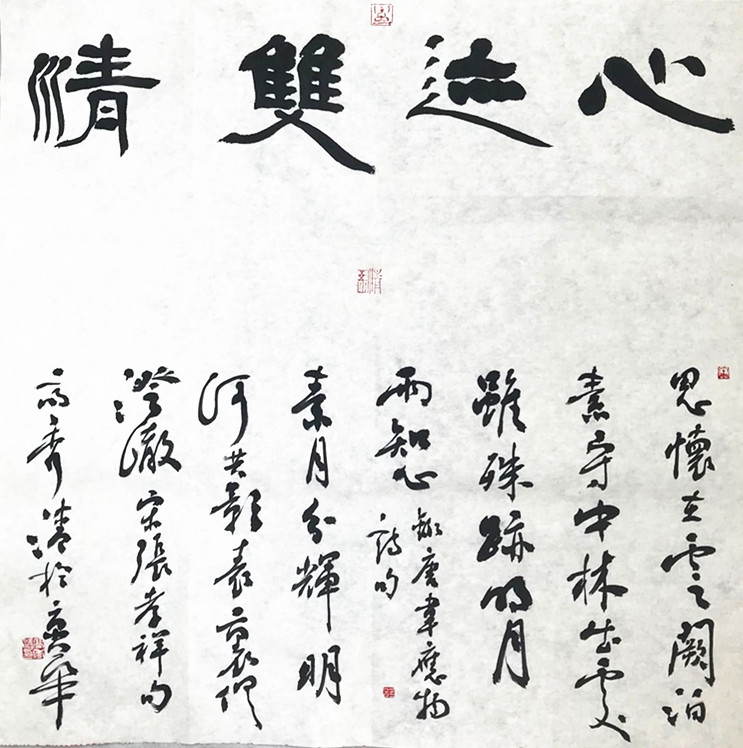 心迹雙清
思懷在雲闕泊
素守中林出處
雖殊跡明月
兩知心 錄唐韋應物
詩句
素月分輝明
河共影表裏俱
澄澈 宋張孝祥句
高秀清於京華